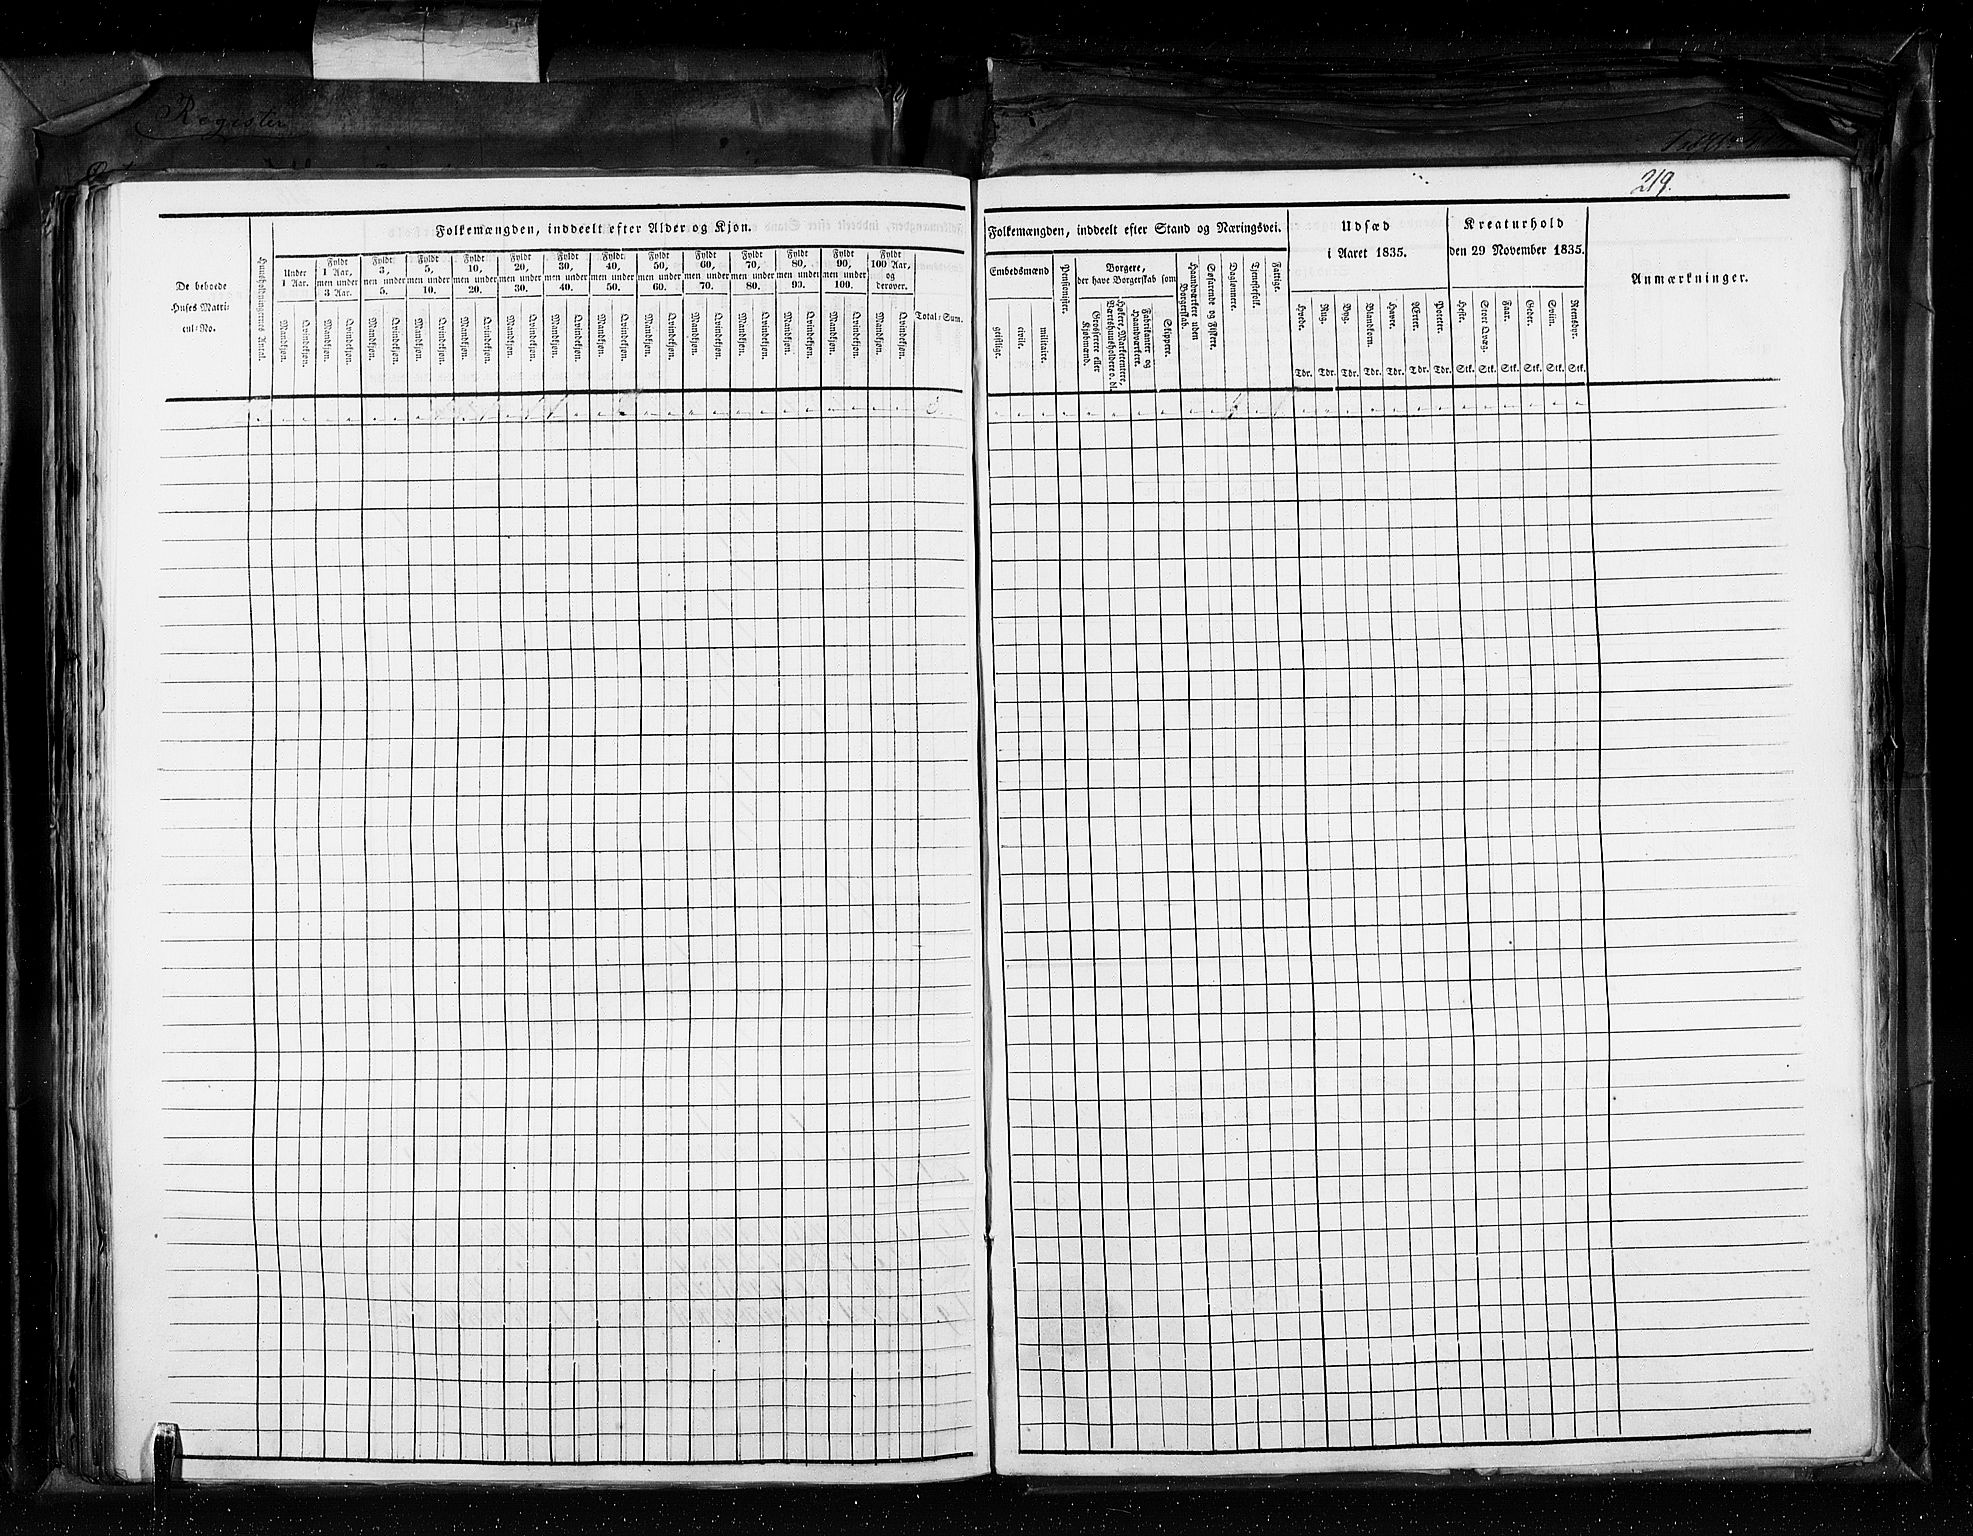 Register
219.
Folkemængden, inddeelt efter Alder og Kjøn.
De beboede
Huses Matri-
cul-No.
Huusholdningernes Antal.
Under
1 Aar.
Fyldt
1 Aar,
men under
3 Aar.
Fyldt
3,
men under
5.
Fyldt
5,
men under
10.
Fyldt
10,
men under
20.
Fyldt
20,
men under
30.
Fyldt
30,
men under
40.
Fyldt
40,
men under
50.
Fyldt
50,
men under
60.
Fyldt
60,
men under
70.
Fyldt
70,
men under
80.
Fyldt
80,
men under
90.
Fyldt
90,
men under
100.
Fyldt
100 Aar,
og
derover.
Mandkjøn. Qvindekjøn. Mandkjøn. Qvindekjøn. Mandkjøn. Qvindekjøn. Mandkjøn. Qvindekjøn. Mandkjøn. Qvindekjøn. Mandkjøn. Qvindekjøn. Mandkjøn. Qvindekjøn. Mandkjøn. Qvindekjøn. Mandkjøn. Qvindekjøn. Mandkjøn. Qvindekjøn. Mandkjøn. Qvindekjøn. Mandkjøn. Qvindekjøn. Mandkjøn. Qvindekjøn. Mandkjøn. Qvindekjøn.
Total-Sum.
Folkemængden, inddeelt efter Stand og Næringsvei.
Embedsmænd
geistlige.
civile.
militaire.
Pensionister.
Borgere,
der have Borgerskab som
Grosserere eller
Kjøbmænd.
Høkere, Marketentere,
Værtshuusholdere o. dl.
Fabrikanter og
Haandværkere.
Skippere.
Haandværkere uden
Borgerskab.
Søfarende og Fiskere.
Daglønnere.
Tjenestefolk.
Fattige.
Udsæd
i Aaret 1835.
Hvede.
Rug.
Byg.
Blandkorn.
Havre.
Erter.
Poteter.
Tdr. Tdr. Tdr. Tdr. Tdr. Tdr. Tdr.
Kreaturhold
den 29 November 1835.
Heste.
Stort Qvæg.
Faar.
Geder.
Sviin.
Reensdyr.
Stk. Stk. Stk. Stk. Stk. Stk.
Anmærkninger.